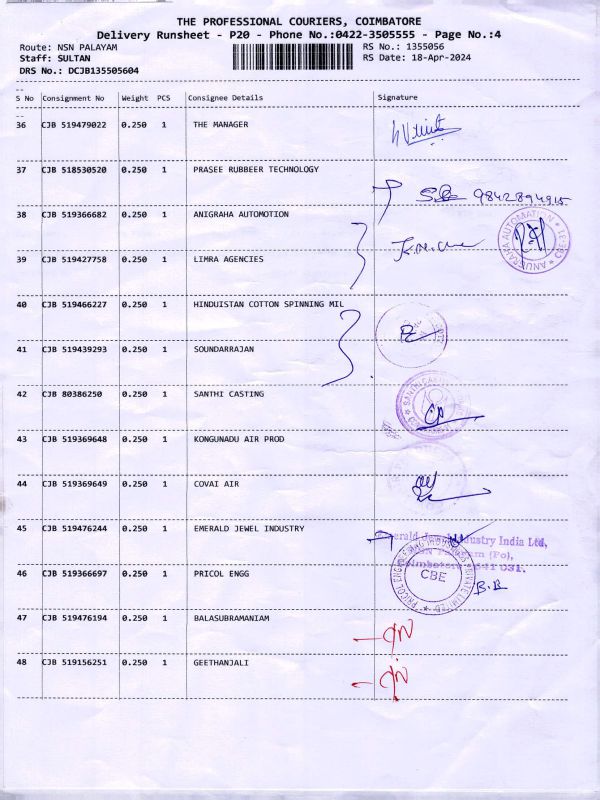 THE PROFESSIONAL COURIERS, COIMBATORE
Delivery Runsheet - P20 - Phone No.:0422-3505555 - Page No.:4
Route: NSN PALAYAM RS No.: 1355056
Staff: SULTAN RS Date: 18-Apr-2024
DRS No.: DCJB135505604
S No Consignment No Weight PCS Consignee Details Signature
36 CJB 519479022 0.250 1 THE MANAGER
37 CJB 518530520 0.250 1 PRASEE RUBBEER TECHNOLOGY
9842894915
38 CJB 519366682 0.250 1 ANIGRAHA AUTOMOTION
ANUGRAHA AUTOMATION
39 CJB 519427758 0.250 1 LIMRA AGENCIES
40 CJB 519466227 0.250 1 HINDUISTAN COTTON SPINNING MIL
41 CJB 519439293 0.250 1 SOUNDARRAJAN
42 CJB 80386250 0.250 1 SANTHI CASTING
43 CJB 519369648 0.250 1 KONGUNADU AIR PROD
44 CJB 519369649 0.250 1 COVAI AIR
45 CJB 519476244 0.250 1 EMERALD JEWEL INDUSTRY
Emerald Jewel Industry India Ltd,
Coimbatore-641 031.
46 CJB 519366697 0.250 1 PRICOL ENGG
PRICOL ENGINEERING INDUSTRIES PRIVATE LIMITED
CBE
B.B
47 CJB 519476194 0.250 1 BALASUBRAMANIAM
48 CJB 519156251 0.250 1 GEETHANJALI